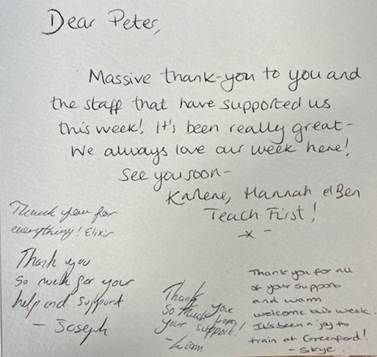 Dear Peter,
Massive thank-you to you and
the staff that have supported us
this week! It's been really great-
We always love our week here!
See you soon-
Karlene, Hannah & Ben
Teach First!
x
Thank you for
everything! Elixir
Thank you
so much for your
help and support
- Joseph
Thank
so much you
your support!
- Liam
Thank you for all
of your support
and warm
welcome this week.
It's been a joy to
train at Greenford!
- Skye